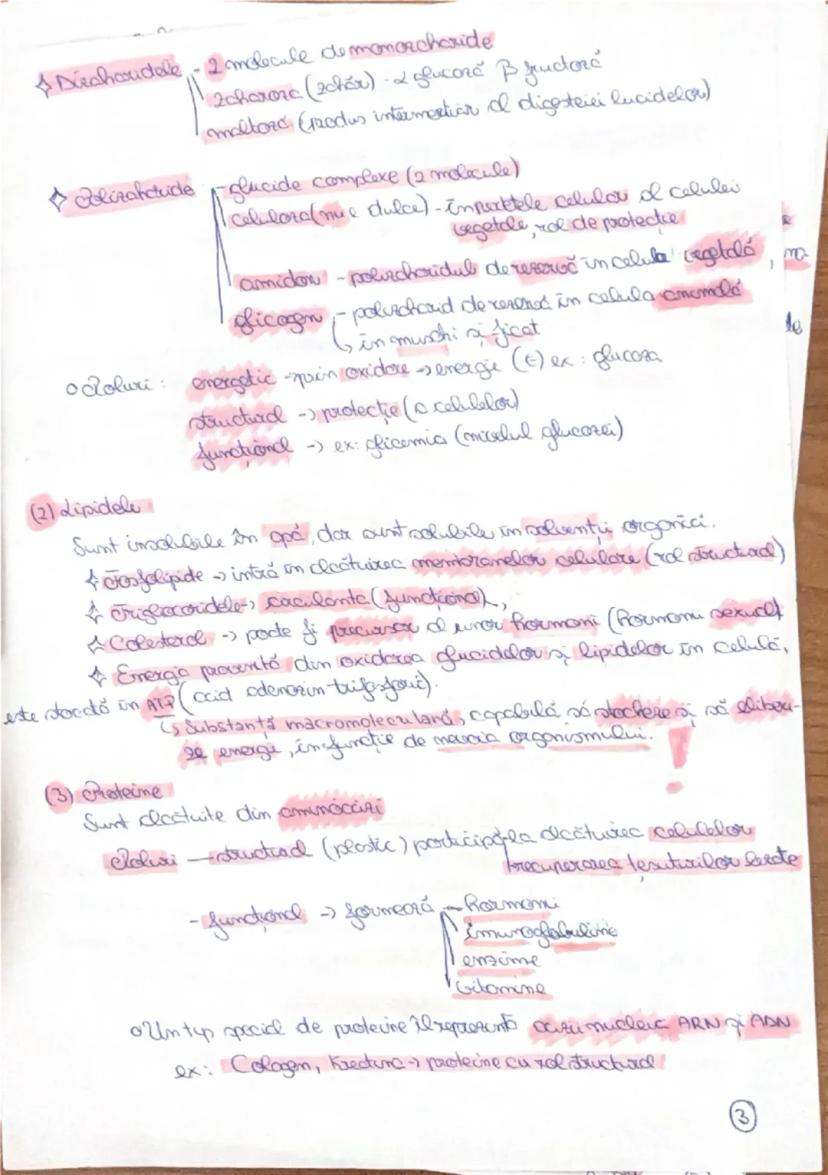 ✧ Dizaharidele - 2 molecule de monozaharide
zaharoza (zahăr) - α glucoză β fructoză
maltoză (produs intermediar al digestiei lucidelor)
✧ Polizaharide - glucide complexe (2 molecule)
celuloza (nu e dulce) - în părețele celular al celulei
vegetale, rol de protecție
amidon - polizaharidul de rezervă în celula vegetală
glicogen - polizaharid de rezervă în celula animală
↳ în mușchi și ficat
o Roluri: energetic - prin oxidare → energie (E) ex: glucoza
structural → protecție (a celulelor)
funcțional → ex: glicemia (nivelul glucozei)
(2) Lipidele
Sunt insolubile în apă, dar sunt solubile în solvenți organici.
✧ Fosfolipide → intră în alcătuirea membranelor celulare (rol structural)
✧ Trigliceridele → circulante (funcțional),
✧ Colesterol → poate fi precursor al unor hormoni (hormoni sexuali)
✧ Energia provenită din oxidarea glucidelor și lipidelor în celulă,
este stocată în ATP (acid adenozin trifosforic).
↳ Substanță macromoleculară, capabilă să stocheze și să elibere-
ze energie, în funcție de nevoia organismului. !
(3) Proteine
Sunt alcătuite din aminoacizi
Roluri - structural (plastic) participă la alcătuirea celulelor
recuperarea țesuturilor lezate
- funcțional → formează - hormoni
imunoglobuline
enzime
vitamine
o Un tip special de proteine îl reprezintă acizii nucleici ARN și ADN
ex: Colagen, keratina → proteine cu rol structural
3